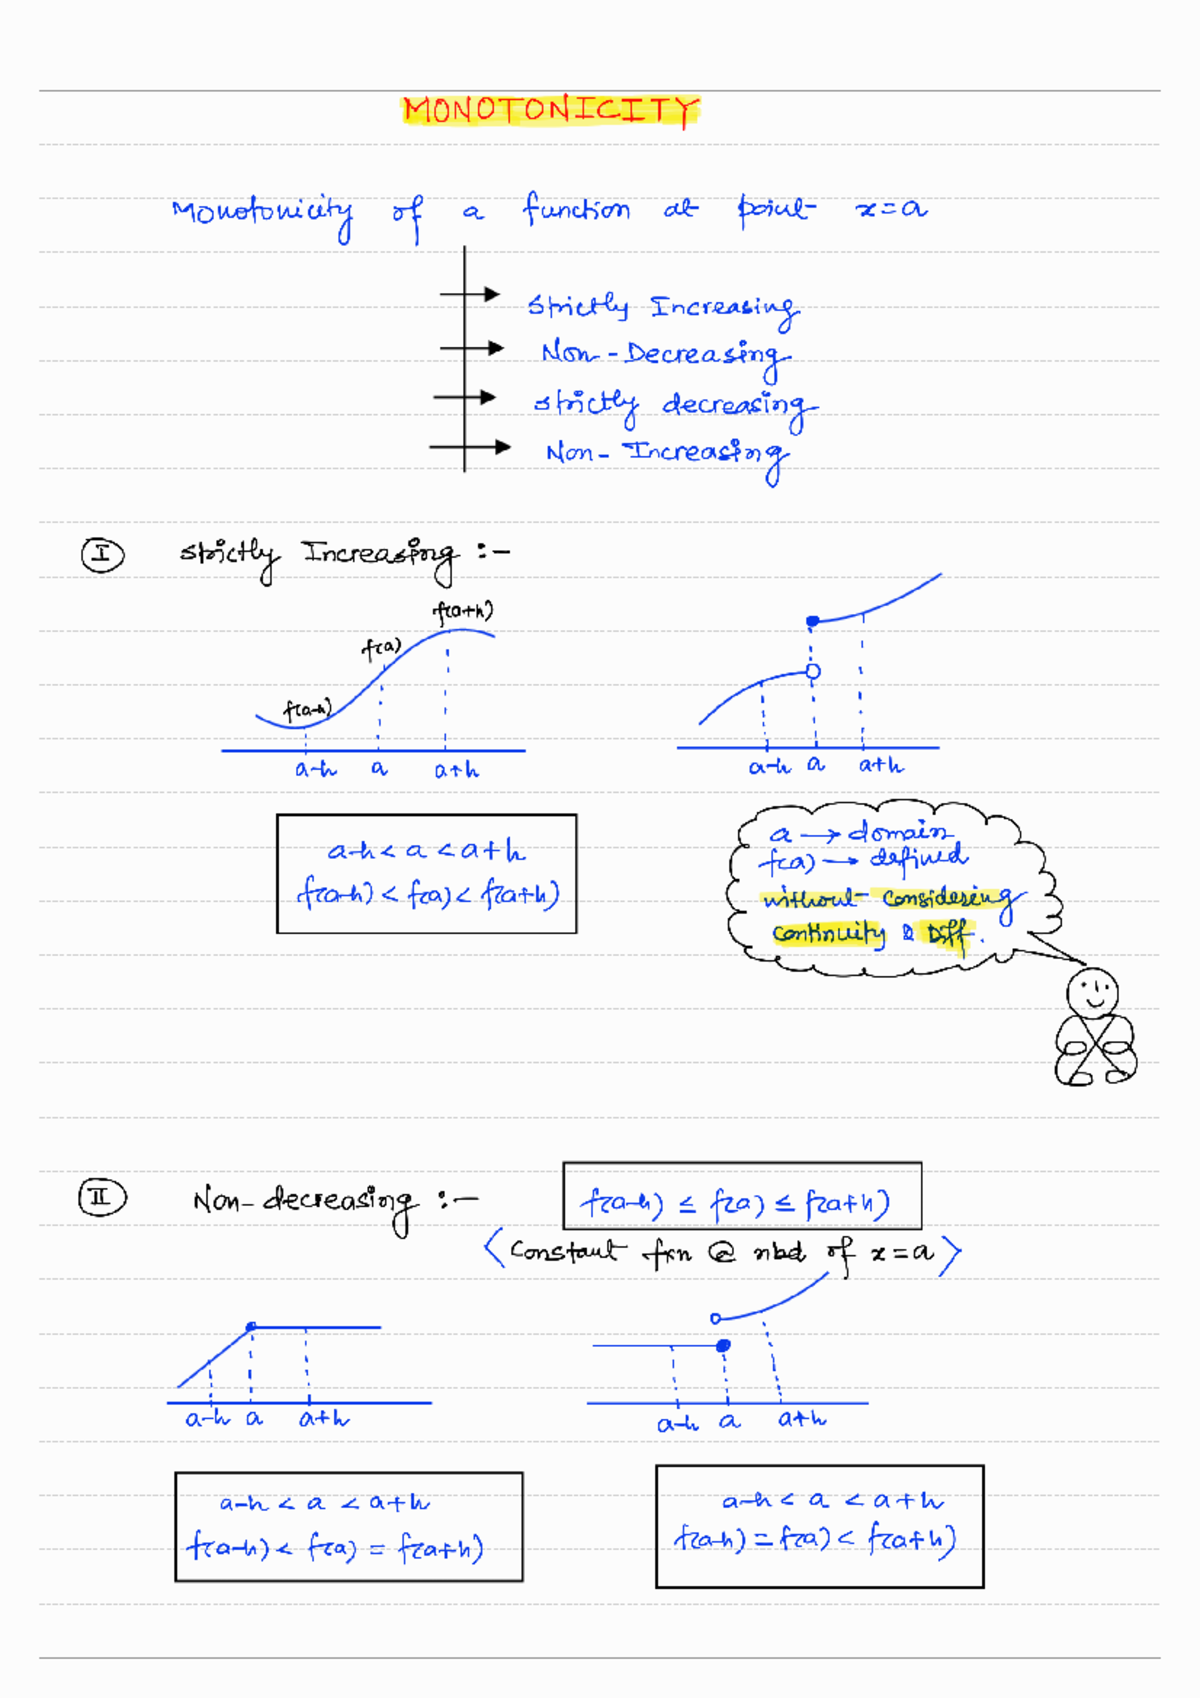 MONOTONICITY
Monotonicity of a function at point x=a
Strictly Increasing
Non-Decreasing
strictly decreasing
Non-Increasing
I Strictly Increasing :-
f(a-h) f(a) f(a+h)
a-h a a+h
a-h a a+h
a-h < a < a+h
f(a-h) < f(a) < f(a+h)
a → domain
f(a) → defined
without considering
continuity & Diff.
II Non-decreasing :-
f(a-h) ≤ f(a) ≤ f(a+h)
<constant fxn @ nbd of x=a>
a-h a a+h
a-h a a+h
a-h < a < a+h
f(a-h) < f(a) = f(a+h)
a-h < a < a+h
f(a-h) = f(a) < f(a+h)